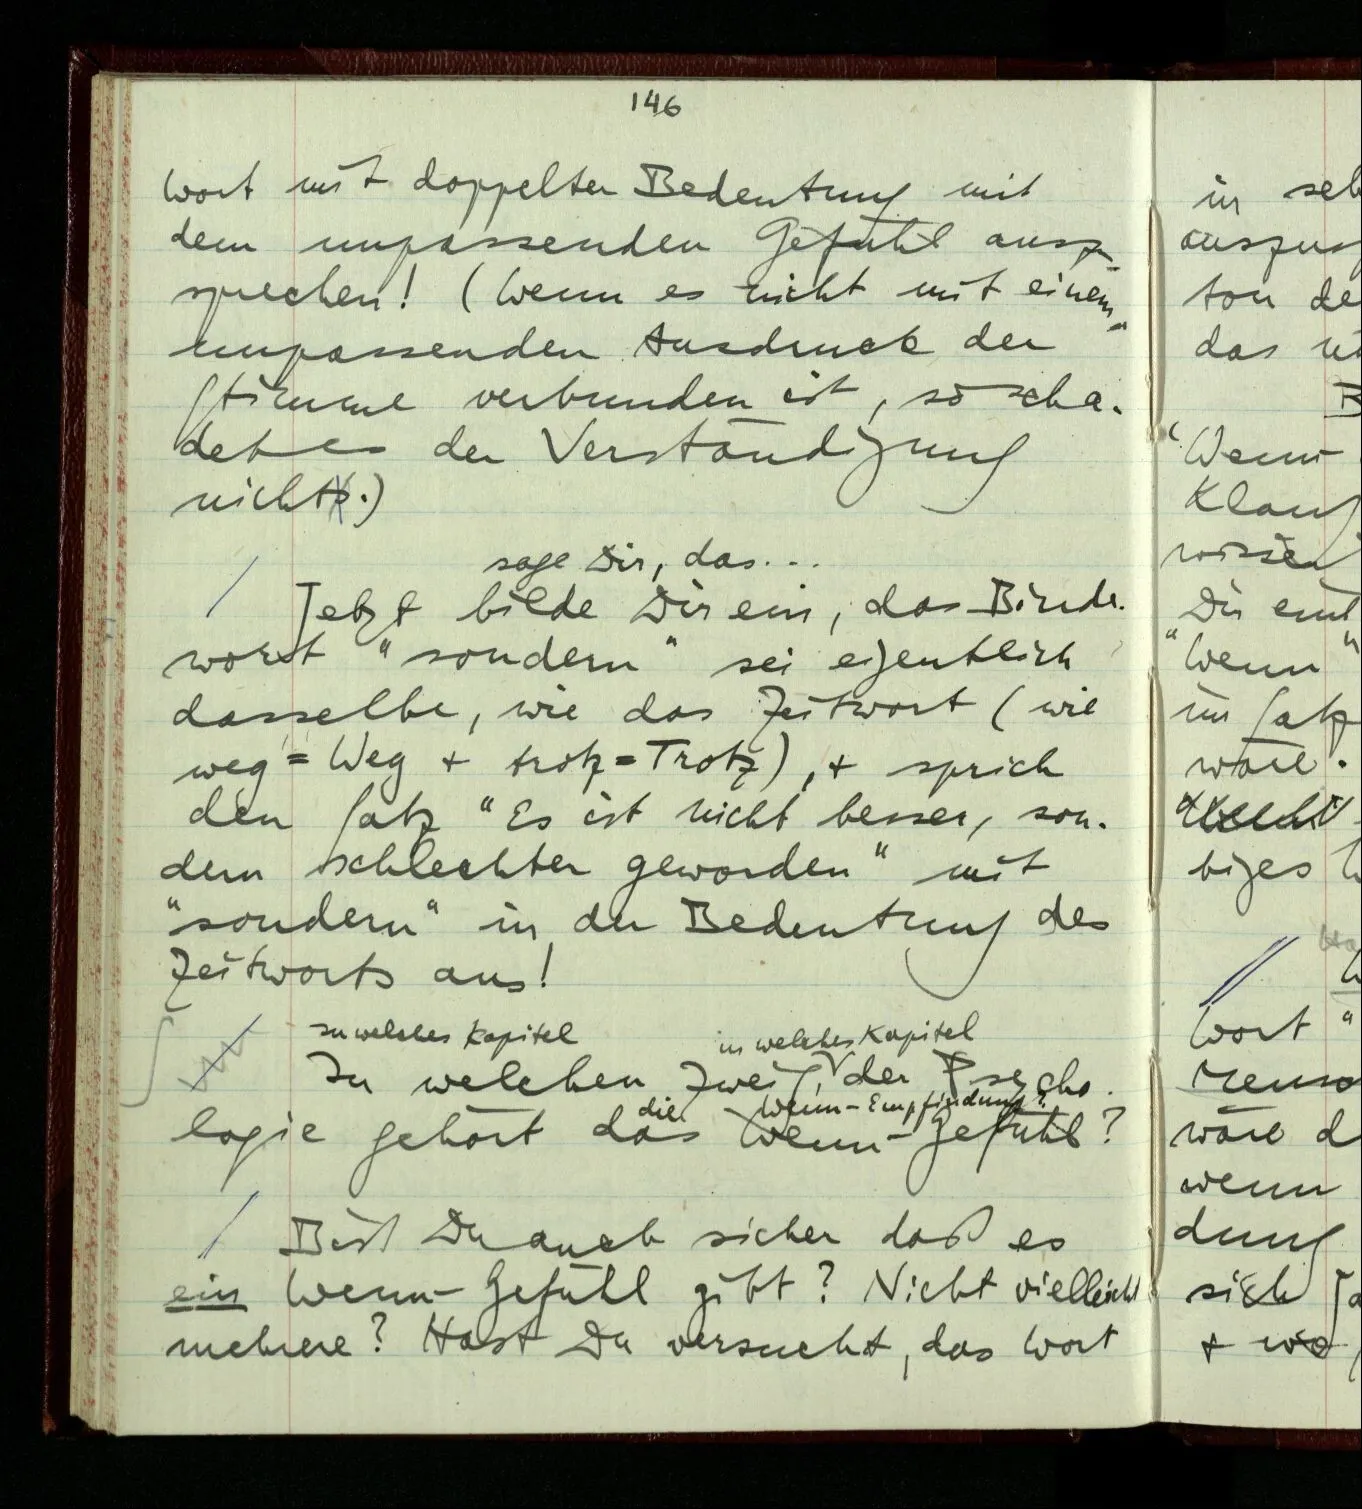 146
Wort mit doppelter Bedeutung mit
dem unpassenden Gefühl ausz-
sprechen! (Wenn es nicht mit einem
unpassenden Ausdruck der
Stimme verbunden ist, so scha-
det es der Verständigung
nicht.)
/ sage Dir, das...
Jetzt bilde Dir ein, das Binde-
wort "sondern" sei eigentlich
dasselbe, wie das Zeitwort (wie
weg = Weg + trotz = Trotz), + sprich
den Satz "Es ist nicht besser, son-
dern schlechter geworden" mit
"sondern" in der Bedeutung des
Zeitworts aus!
zu welches Kapitel in welches Kapitel
In welchen Zweig der Psycho-
die Wenn-Empfindung?
logie gehört das Wenn-Gefühl?
/ Bist Du auch sicher daß es
ein Wenn-Gefühl gibt? Nicht vielleicht
mehrere? Hast Du versucht, das Wort
in
auszus
ton de
das
"Wenn-
Klang
wissen
Dir
"Wenn"
im Satz
wäre.
biges
//
Wort "
wäre d
wenn
dung
sich
+ wo